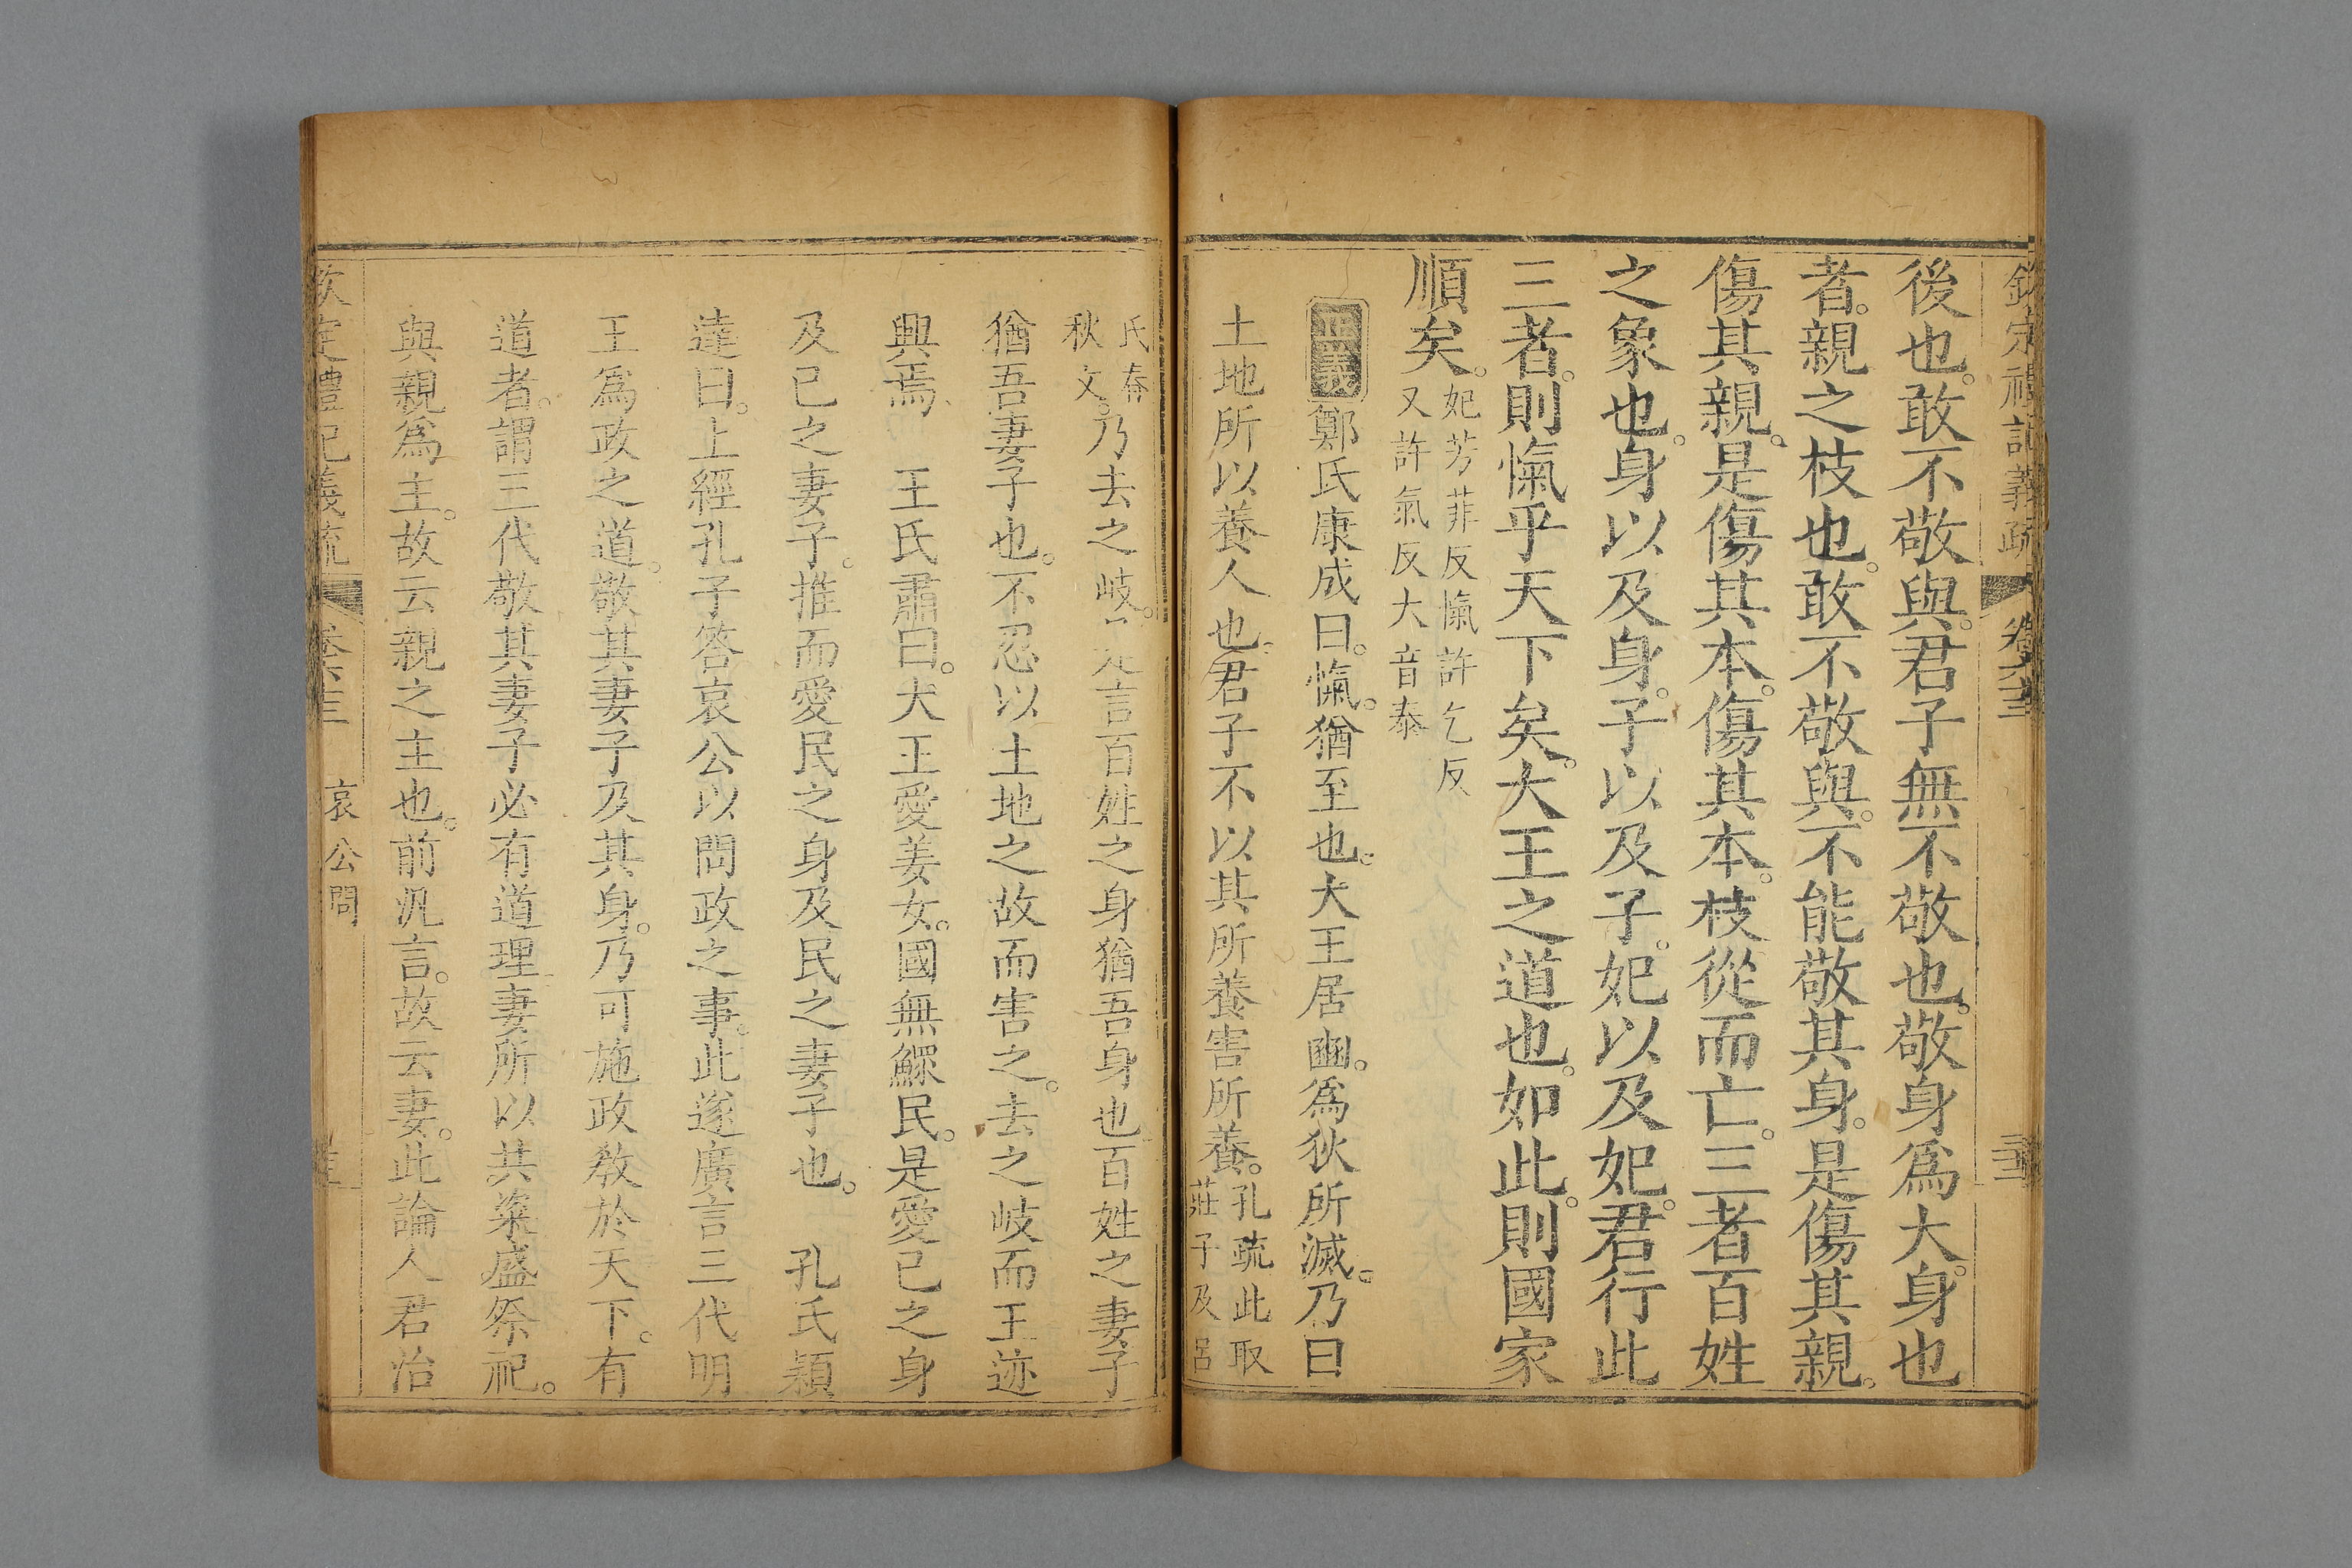 欽定禮記義疏 卷六十三
後也。敢不敬與。君子無不敬也。敬身爲大。身也
者。親之枝也。敢不敬與。不能敬其身。是傷其親。
傷其親。是傷其本。傷其本。枝從而亡。三者百姓
之象也。身以及身。子以及子。妃以及妃。君行此
三者。則愾乎天下矣。大王之道也。如此。則國家
順矣。妃芳菲反愾許乞反
又許氣反大音泰
正義 鄭氏康成曰。愾。猶至也。大王居豳。爲狄所滅。乃曰
土地所以養人也。君子不以其所養害所養。孔疏此取
莊子及呂
氏春
秋文。乃去之岐。是言百姓之身猶吾身也百姓之妻子
猶吾妻子也。不忍以土地之故而害之。去之岐而王迹
興焉 王氏肅曰。大王愛姜女。國無鰥民。是愛已之身
及已之妻子。推而愛民之身及民之妻子也。 孔氏穎
達曰。上經孔子答哀公以問政之事。此遂廣言三代明
王爲政之道。敬其妻子及其身。乃可施政敎於天下。有
道者。謂三代敬其妻子必有道理妻所以共粢盛祭祀。
與親爲主。故云親之主也。前汎言。故云妻。此論人君治
欽定禮記義疏 卷六十三 哀公問